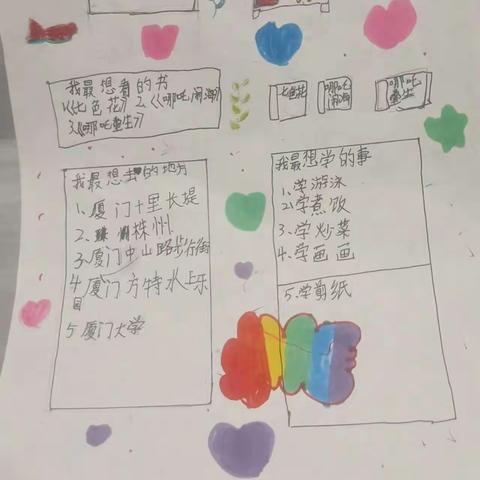 我最想看的书
1.《七色花》2.《哪吒闹海》
3.《哪吒重生》
七色花
哪吒
闹海
哪吒
重生
我最想去的地方
1、厦门十里长堤
2、株州
3、厦门中山路步行街
4厦门方特水上乐
园
5 厦门大学
我最想学的事
1、学游泳
2学煮饭
3、学炒菜
4、学画画
5、学剪纸